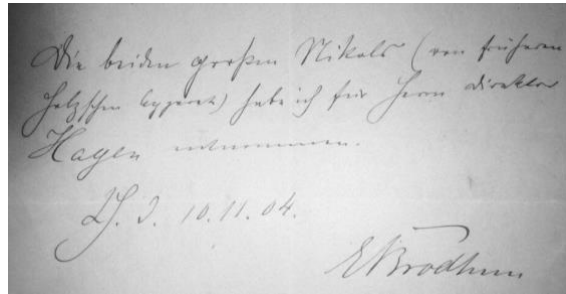 Die beiden großen Nikols (von früheren
Apparat) habe ich für Herrn Direktor
Hagen entnommen.
Ch. d. 10.11.04.
EBrodhun